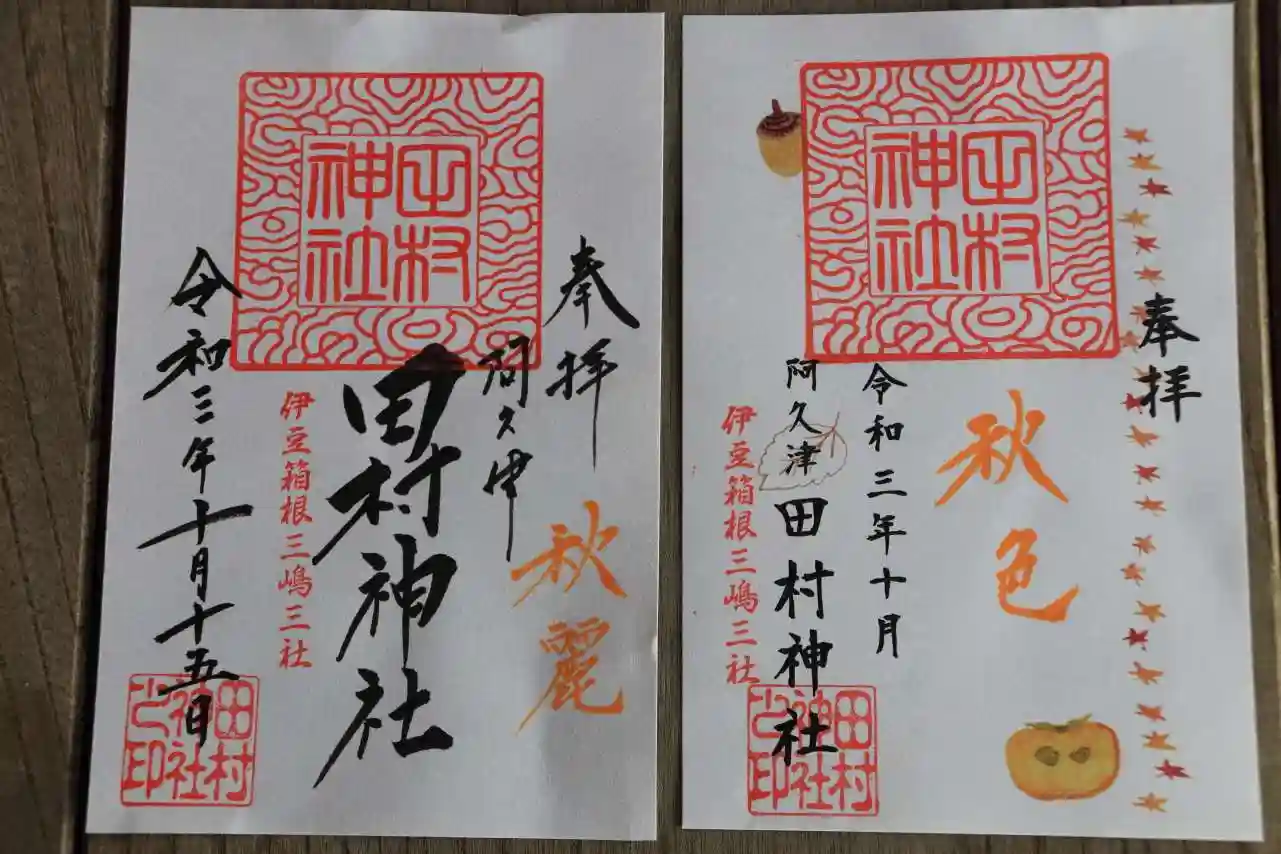 奉拝
秋麗
阿久津
田村神社
伊豆箱根三嶋三社
令和三年十月十五日
田村
神社
田村
神社
之印
奉拝
秋色
令和三年十月
阿久津田村神社
伊豆箱根三嶋三社
田村
神社
田村
神社
之印